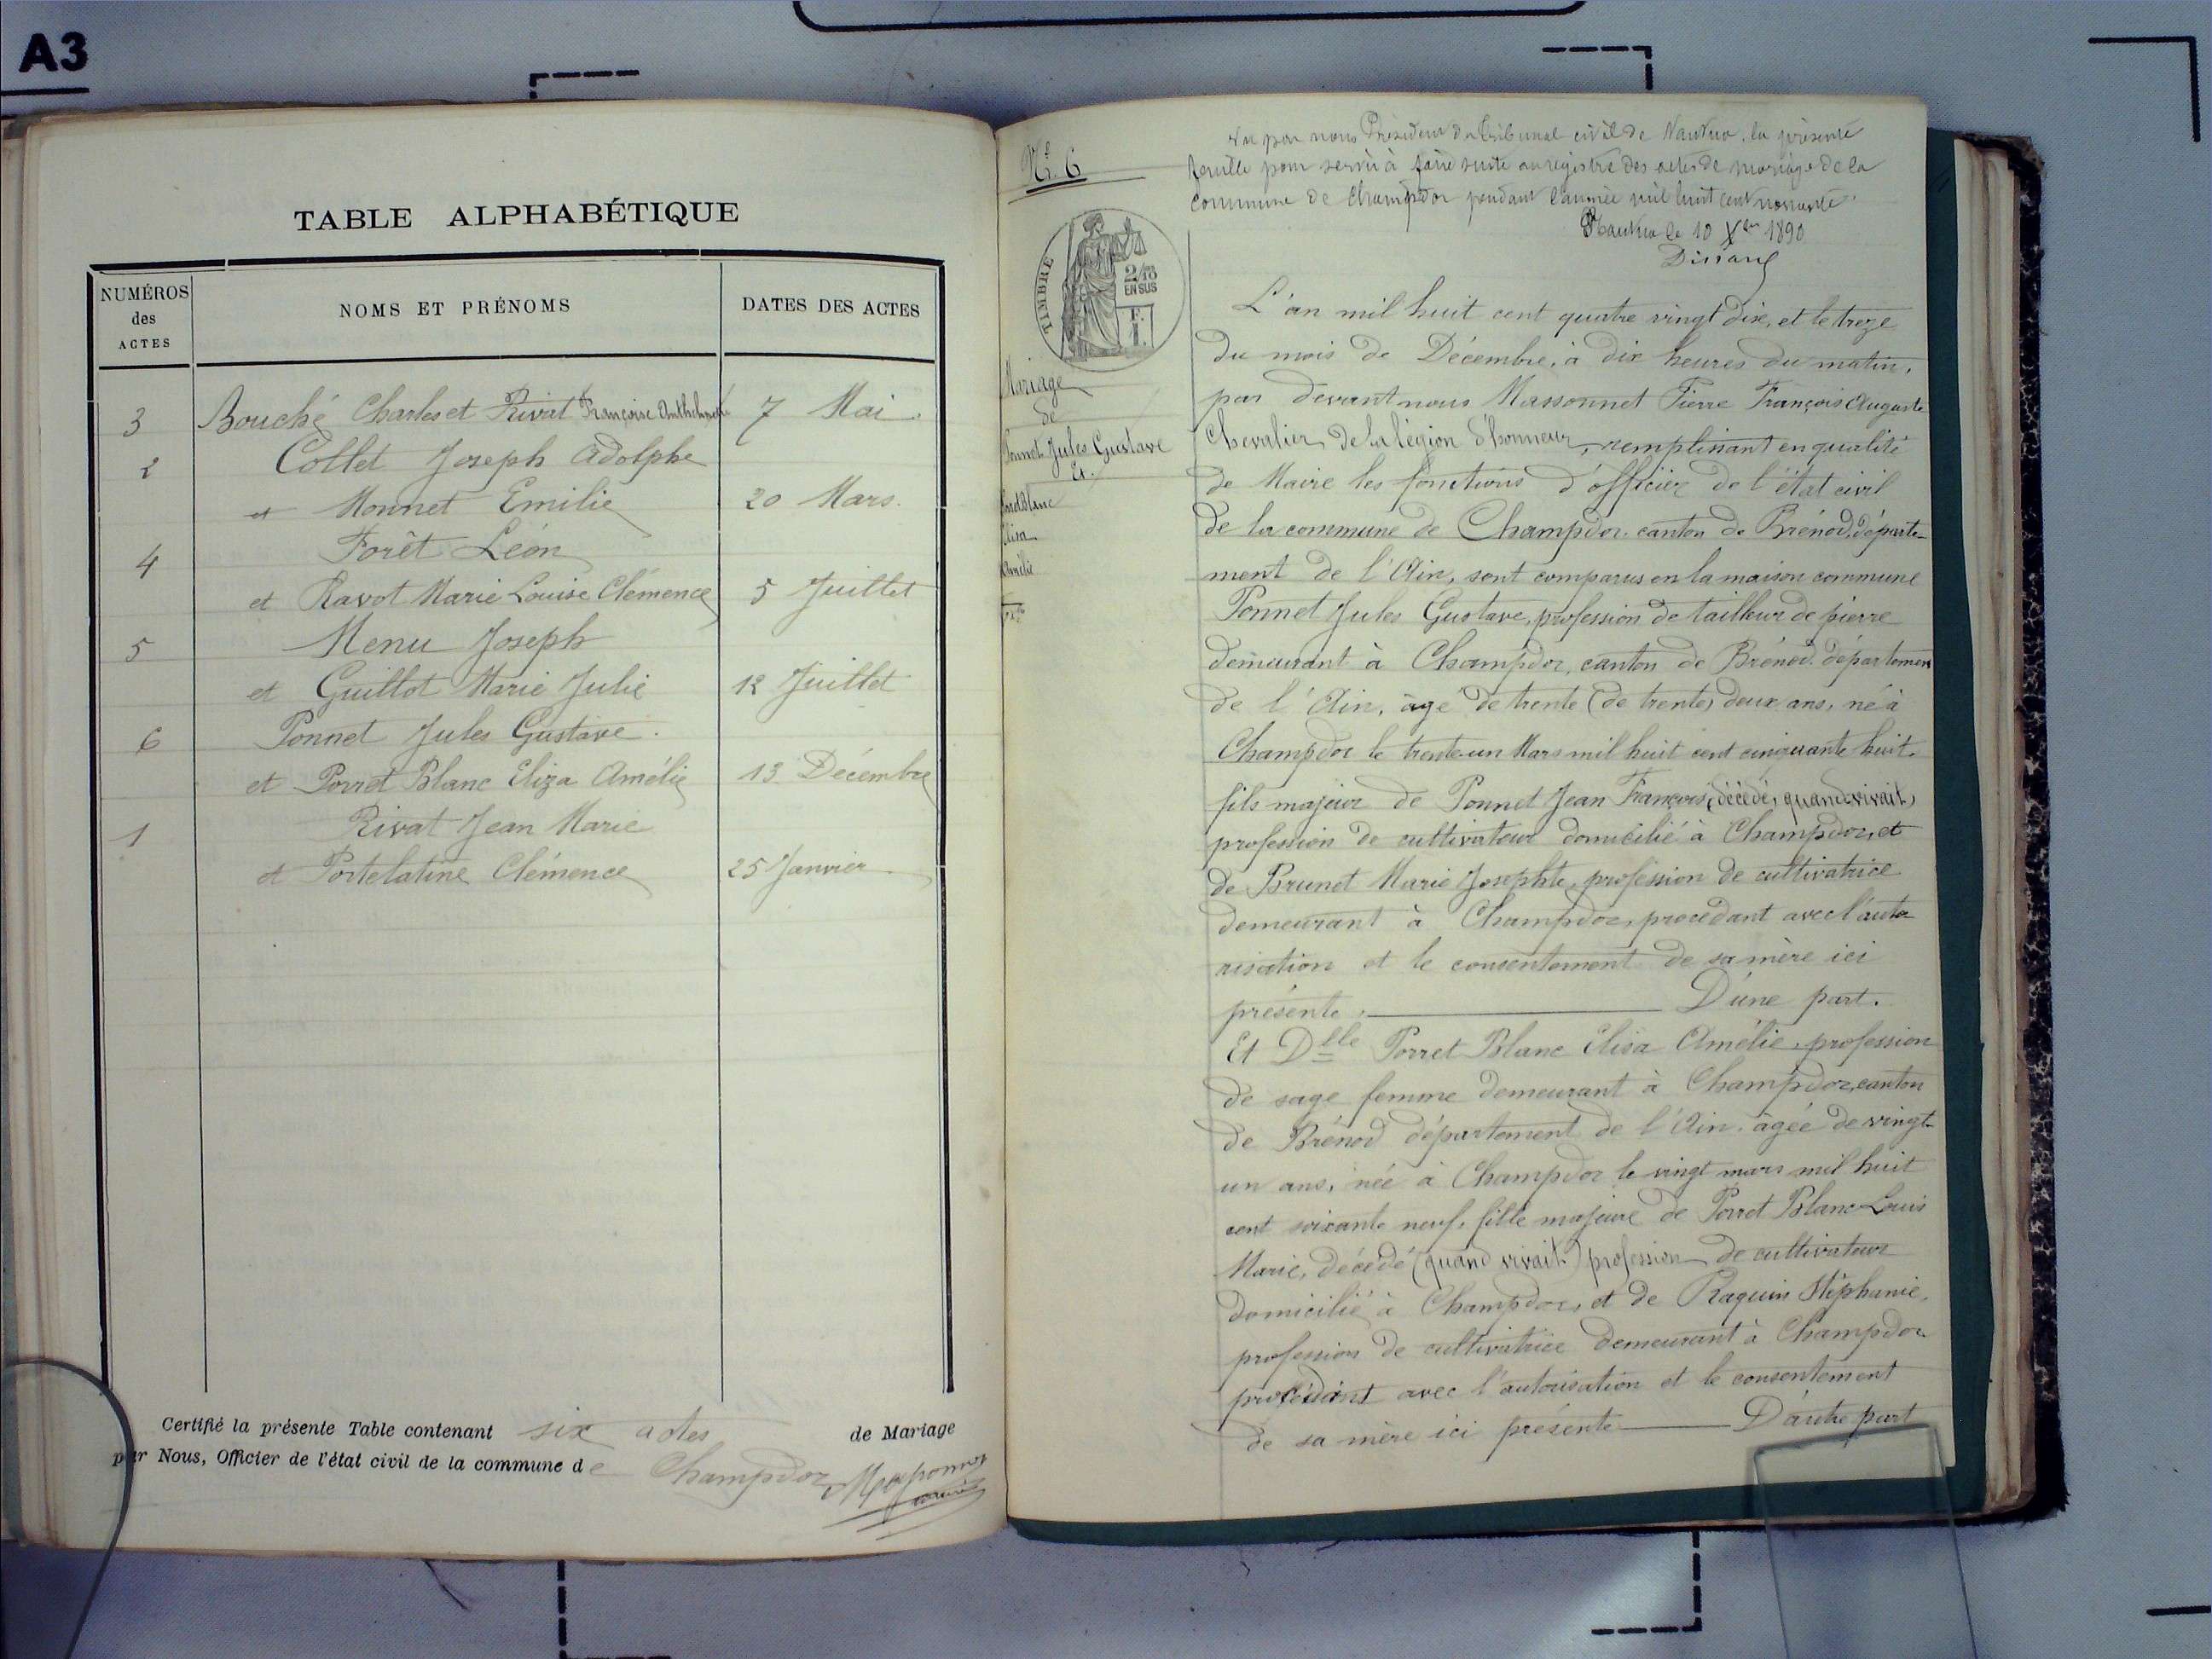 A3
TABLE ALPHABÉTIQUE
NUMÉROS des ACTES
NOMS ET PRÉNOMS
DATES DES ACTES
3 Bouché Charles et Rivat Françoise 7 Mai.
2 Collet Joseph Adolphe
et Monnet Emilie 20 Mars.
4 Forêt Léon
et Ravot Marie Louise Clémence 5 Juillet
5 Menu Joseph
et Guillot Marie Julie 12 Juillet
6 Ponnet Jules Gustave.
et Porret Blanc Eliza Amélie 13 Décembre
1 Rivat Jean Marie
et Portelatine Clémence 25 Janvier
Certifié la présente Table contenant six actes de Mariage
par Nous, Officier de l'état civil de la commune de Champdor,
maire
N° 6
Vu par nous Président du Tribunal civil de Nantua, la présente
feuille pour servir à faire suite au registre des actes de mariage de la
commune de Champdor pendant l'année mil huit cent nonante.
Nantua le 10 Xbre 1890
TIMBRE
2/10 EN SUS
F.
1.
Mariage
de
Ponnet Jules Gustave
Et
Blanc
Elisa
Amélie
L'an mil huit cent quatre vingt dix, et le treze
du mois de Décembre, à dix heures du matin,
par devant nous Massonnet Pierre François Auguste
Chevalier de la légion d'honneur, remplissant en qualité
de Maire les fonctions d'officier de l'état civil
de la commune de Champdor. canton de Brénod, départe-
ment de l'Ain, sont comparus en la maison commune
Ponnet Jules Gustave, profession de tailleur de pierre
demeurant à Champdor, canton de Brénod. département
de l'Ain, âgé de trente (de trente) deux ans, né à
Champdor le trente un Mars mil huit cent cinquante huit.
fils majeur de Ponnet Jean François, (décédé, quand vivait)
profession de cultivateur domicilié à Champdor, et
de Brunet Marie Josephte, profession de cultivatrice
demeurant à Champdor, procédant avec l'auto
risation et le consentement de sa mère ici
présente. D'une part.
Et Dlle Porret Blanc Elisa Amélie, profession
de sage femme demeurant à Champdor, canton
de Brénod département de l'Ain. âgée de vingt-
un ans, née à Champdor le vingt mars mil huit
cent soixante neuf, fille majeure de Porret Blanc Louis
Marie, décédé (quand vivait) profession de cultivateur
domicilié à Champdor, et de Raquin Stéphanie,
profession de cultivatrice demeurant à Champdor
procédant avec l'autorisation et le consentement
de sa mère ici présente D'autre part